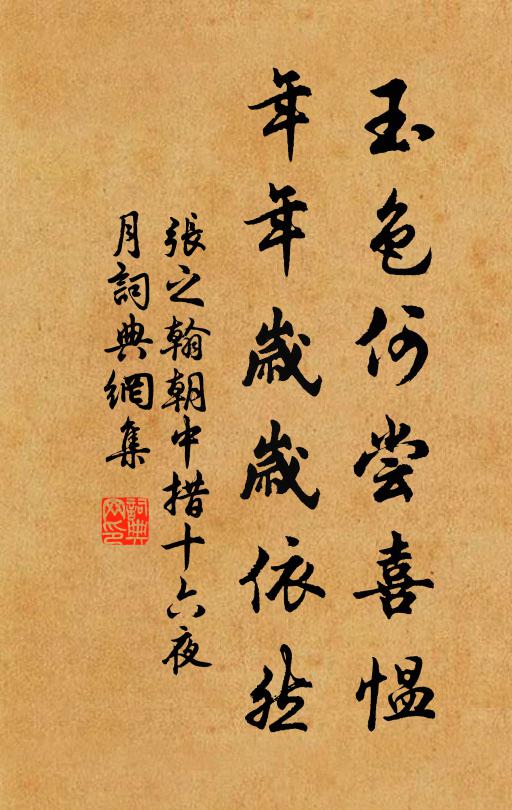 玉色何嘗喜愠
年年歲歲依然
張之翰朝中措十六夜
月詞典網集
詞典網印